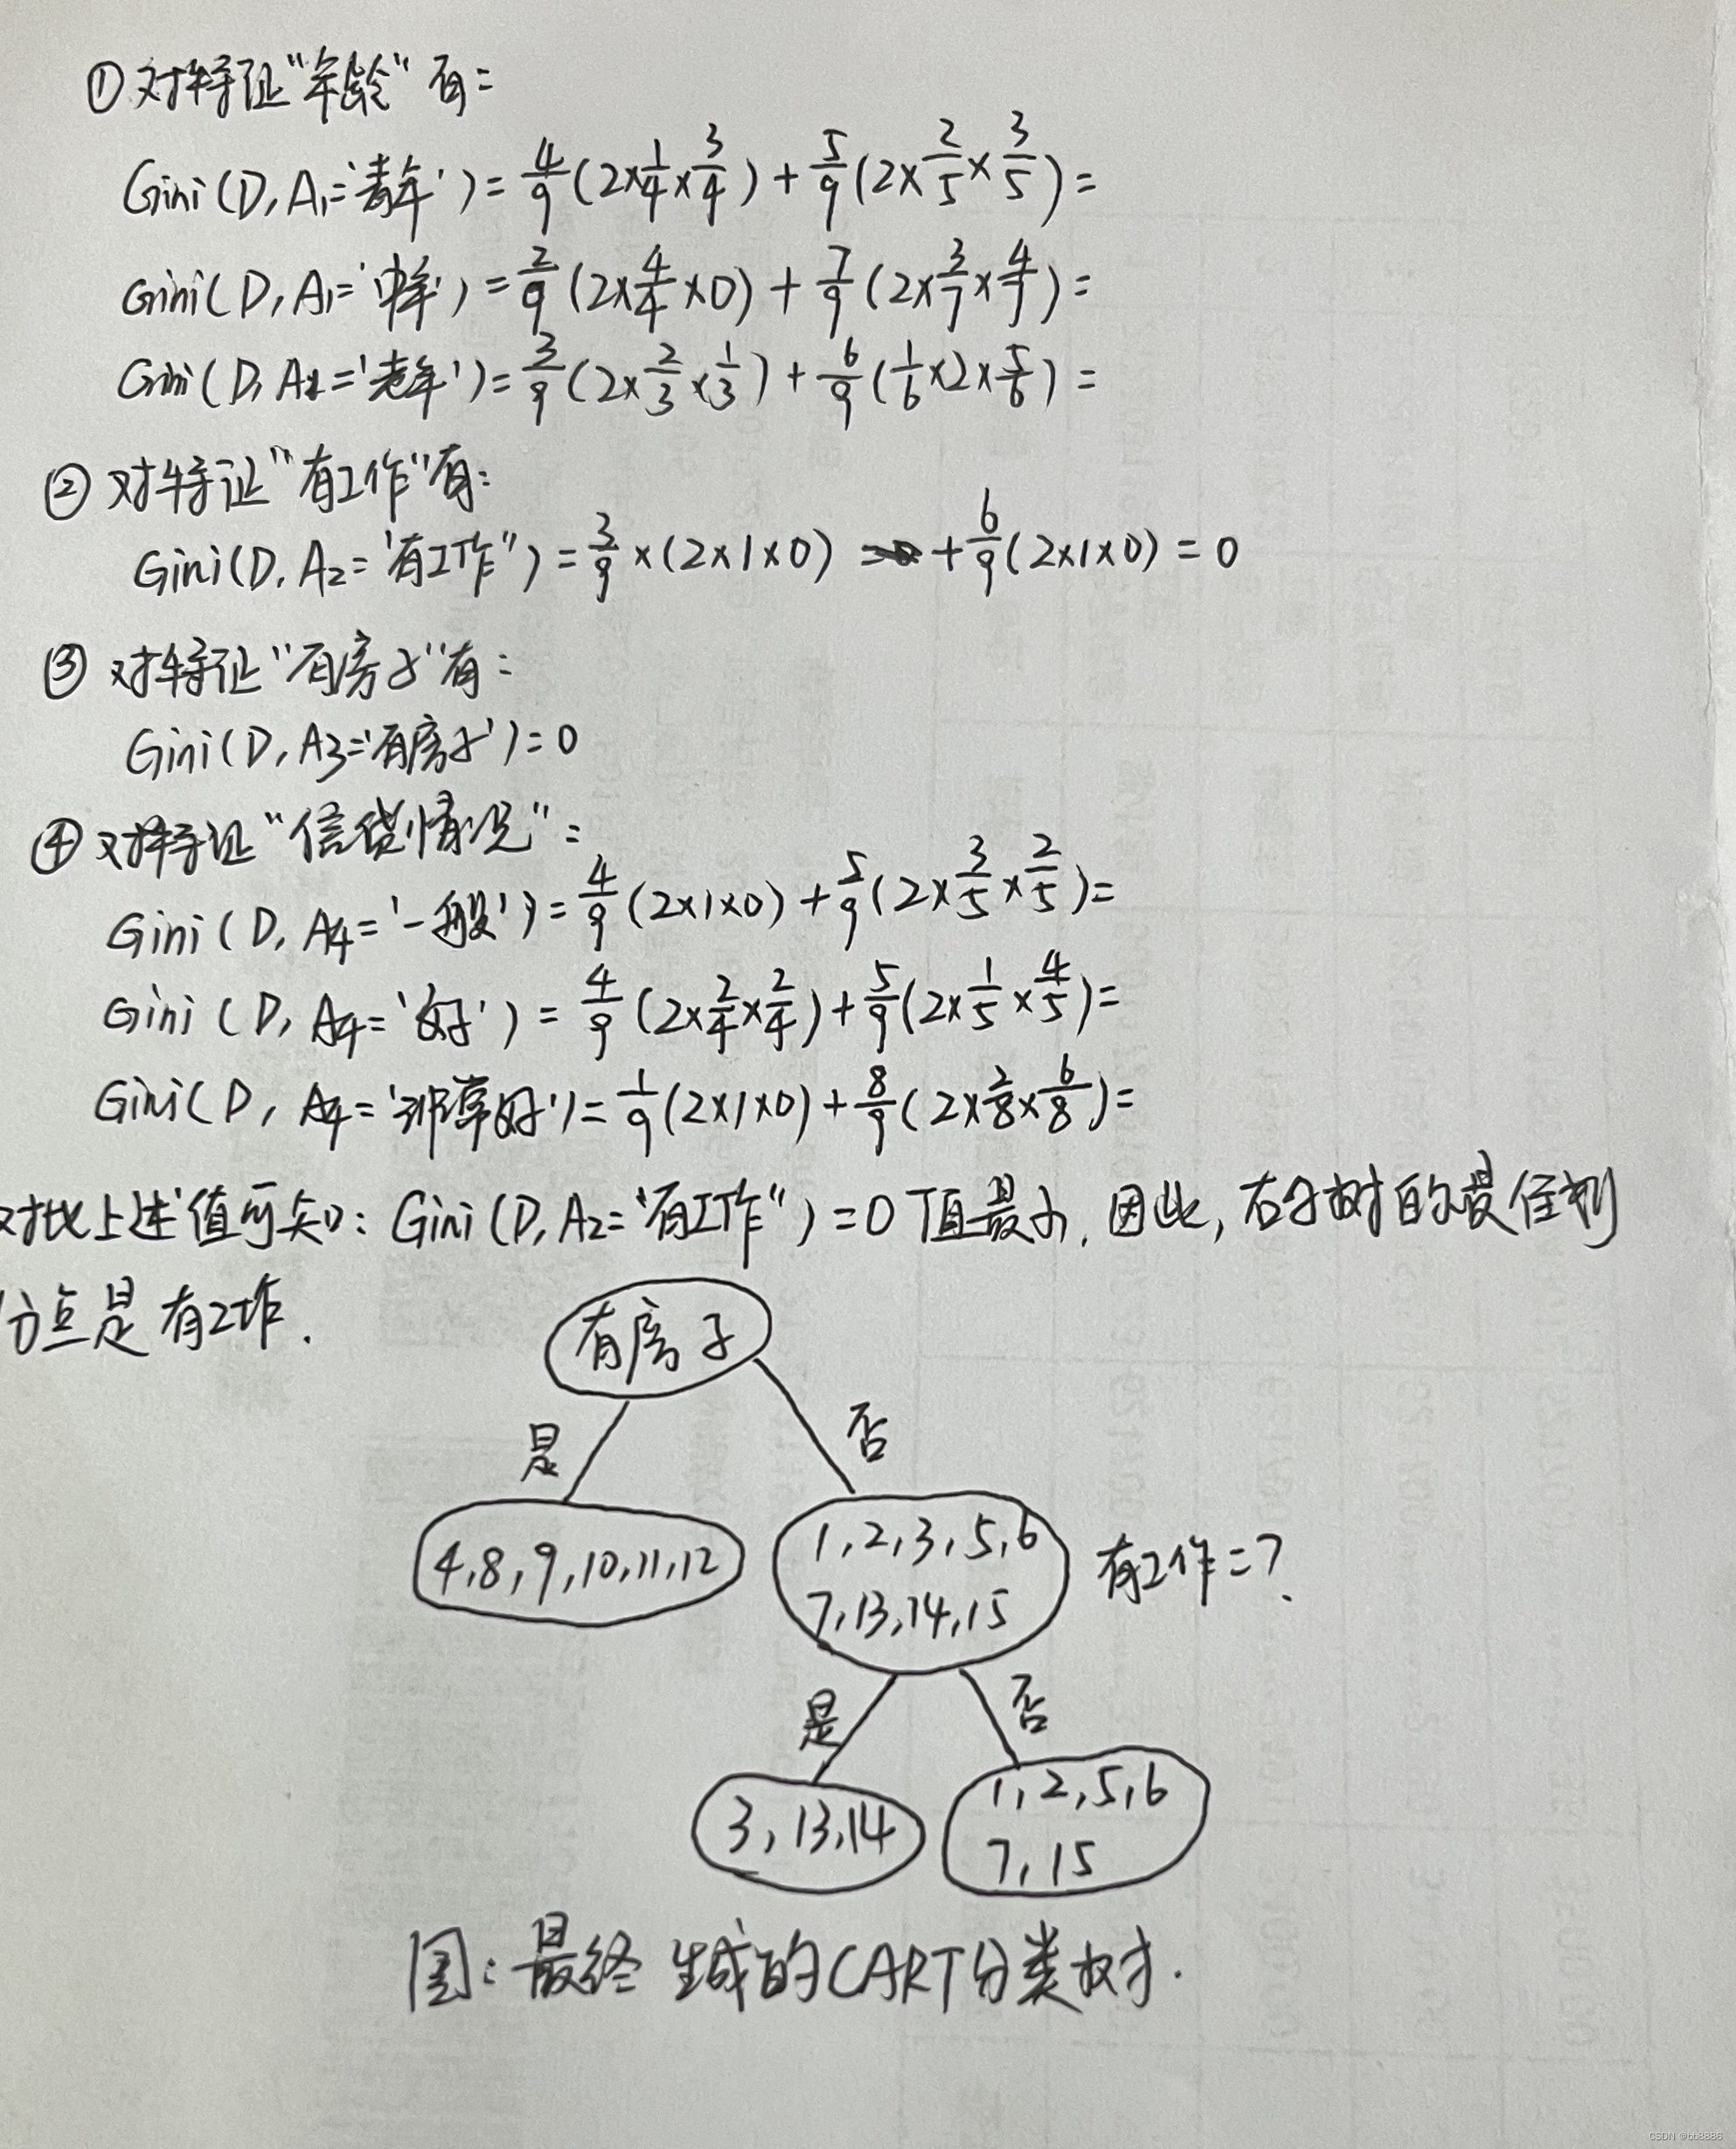 ① 对特征“年龄”有:
Gini(D, A₁='青年') = 4/9 (2×1/4×3/4) + 5/9 (2×2/5×3/5) =
Gini(D, A₁='中年') = 2/9 (2×4/4×0) + 7/9 (2×3/7×4/7) =
Gini(D, A₁='老年') = 3/9 (2×2/3×1/3) + 6/9 (1/6×2×5/6) =
② 对特证“有工作”有:
Gini(D, A₂='有工作") = 3/9 × (2×1×0) + 6/9 (2×1×0) = 0
③ 对特征“有房子”有:
Gini(D, A₃='有房子') = 0
④ 对特征“信贷情况”:
Gini(D, A₄='一般') = 4/9 (2×1×0) + 5/9 (2×3/5×2/5) =
Gini(D, A₄='好') = 4/9 (2×2/4×2/4) + 5/9 (2×1/5×4/5) =
Gini(D, A₄='非常好') = 1/9 (2×1×0) + 8/9 (2×2/8×6/8) =
对比上述值可知: Gini(D, A₂="有工作") = 0 值最小. 因此, 右子树的最佳划
分点是有工作.
有房子
是
否
4,8,9,10,11,12
1,2,3,5,6
7,13,14,15
有工作=?
是
否
3,13,14
1,2,5,6
7,15
图: 最终生成的CART分类树.
CSDN @bb8886